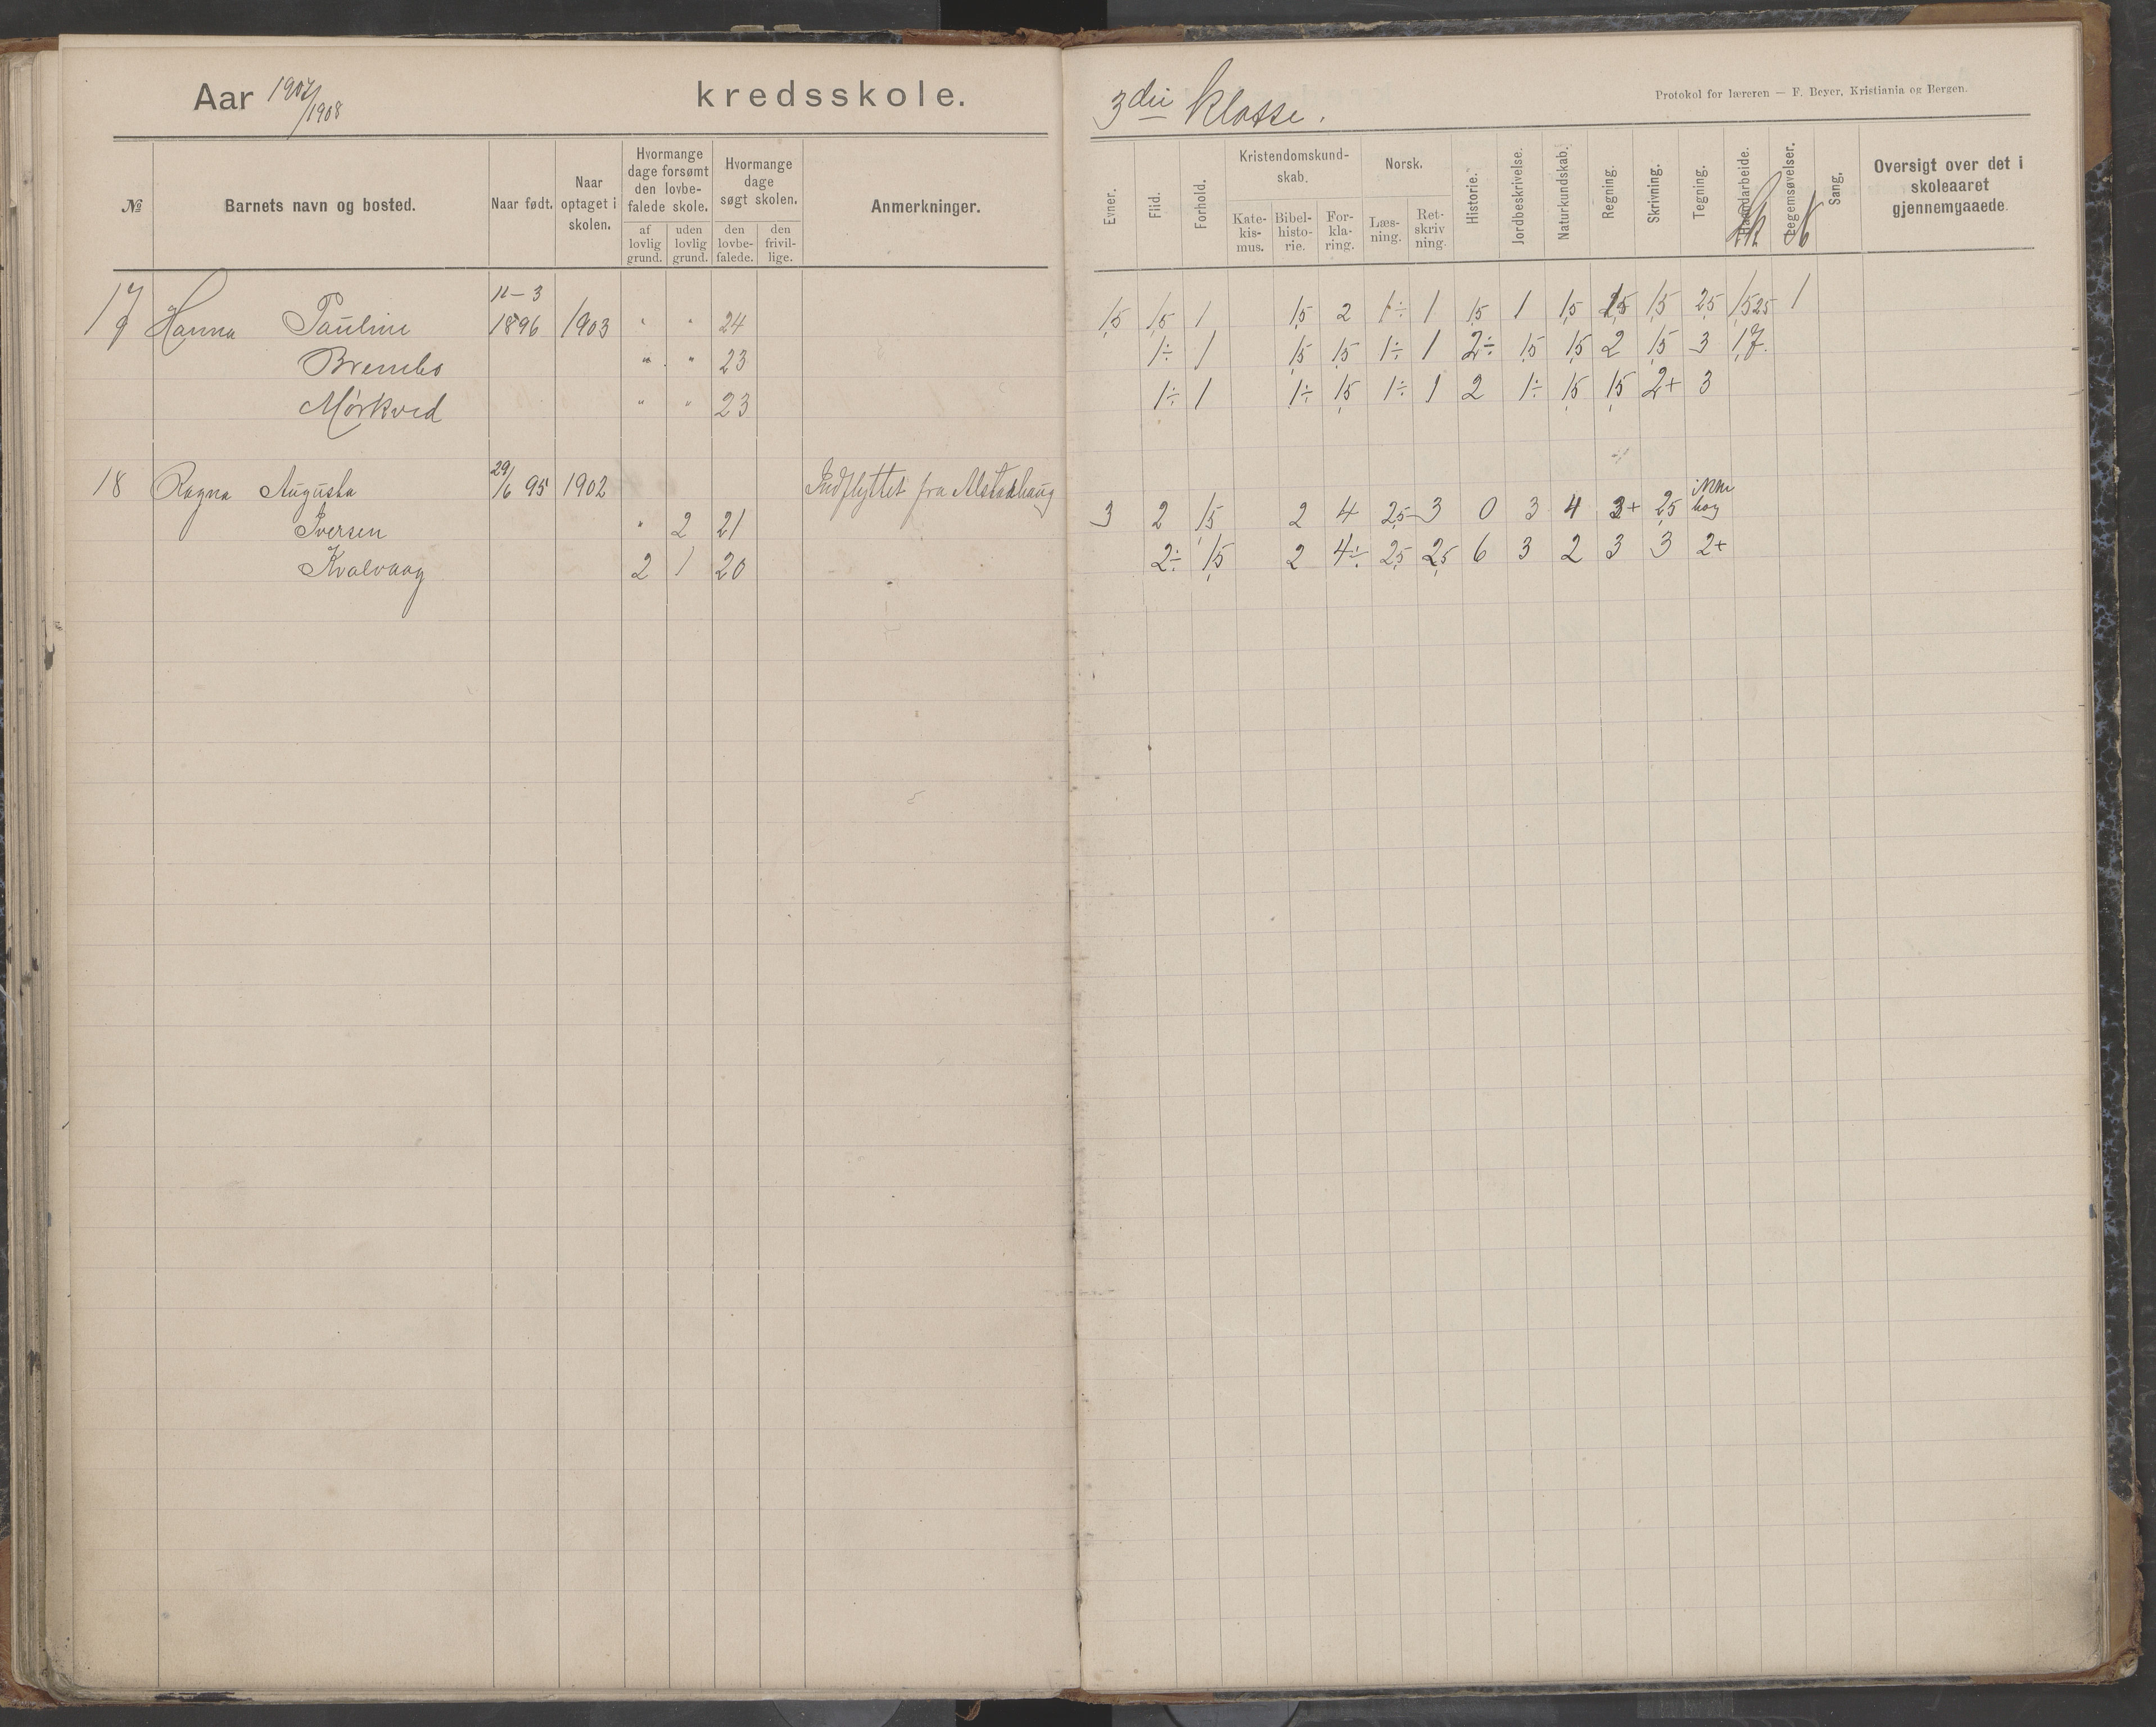 Aar 1907/1908 kredsskole. 3die klasse.
Protokol for læreren — F. Beyer, Kristiania og Bergen.
№ Barnets navn og bosted. Naar født. Naar optaget i skolen. Hvormange dage forsømt den lovbefalede skole. af lovlig grund. uden lovlig grund. Hvormange dage søgt skolen. den lovbefalede. den frivillige. Anmerkninger.
Evner. Flid. Forhold. Kristendomskundskab. Katekismus. Bibelhistorie. Forklaring. Norsk. Læsning. Retskrivning. Historie. Jordbeskrivelse. Naturkundskab. Regning. Skrivning. Tegning. Haandarbeide. Legemsøvelser. Sang. Oversigt over det i skoleaaret gjennemgaaede.
11-3
17 Hanna Pauline 1896 1903 " " 24 1,5 1,5 1 1,5 2 1÷ 1 1,5 1 1,5 1,5 2,5 1,5 25 1
9 Brembo " " 23 1÷ 1 1,5 1,5 1÷ 1 2÷ 1,5 1,5 2 1,5 3 1,7.
Mørkved " " 23 1÷ 1 1÷ 1,5 1÷ 1 2 1÷ 1,5 1,5 2+ 3
18 Ragna Augusta 29/6 95 1902 Indflyttet fra Alstadhaug
Iversen " 2 21 3 2 1,5 2 4 2,5 3 0 3 4 3+ 2,5 ikke bog
Kvalvaag 2 1 20 2÷ 1,5 2 4÷ 2,5 2,5 6 3 2 3 3 2+